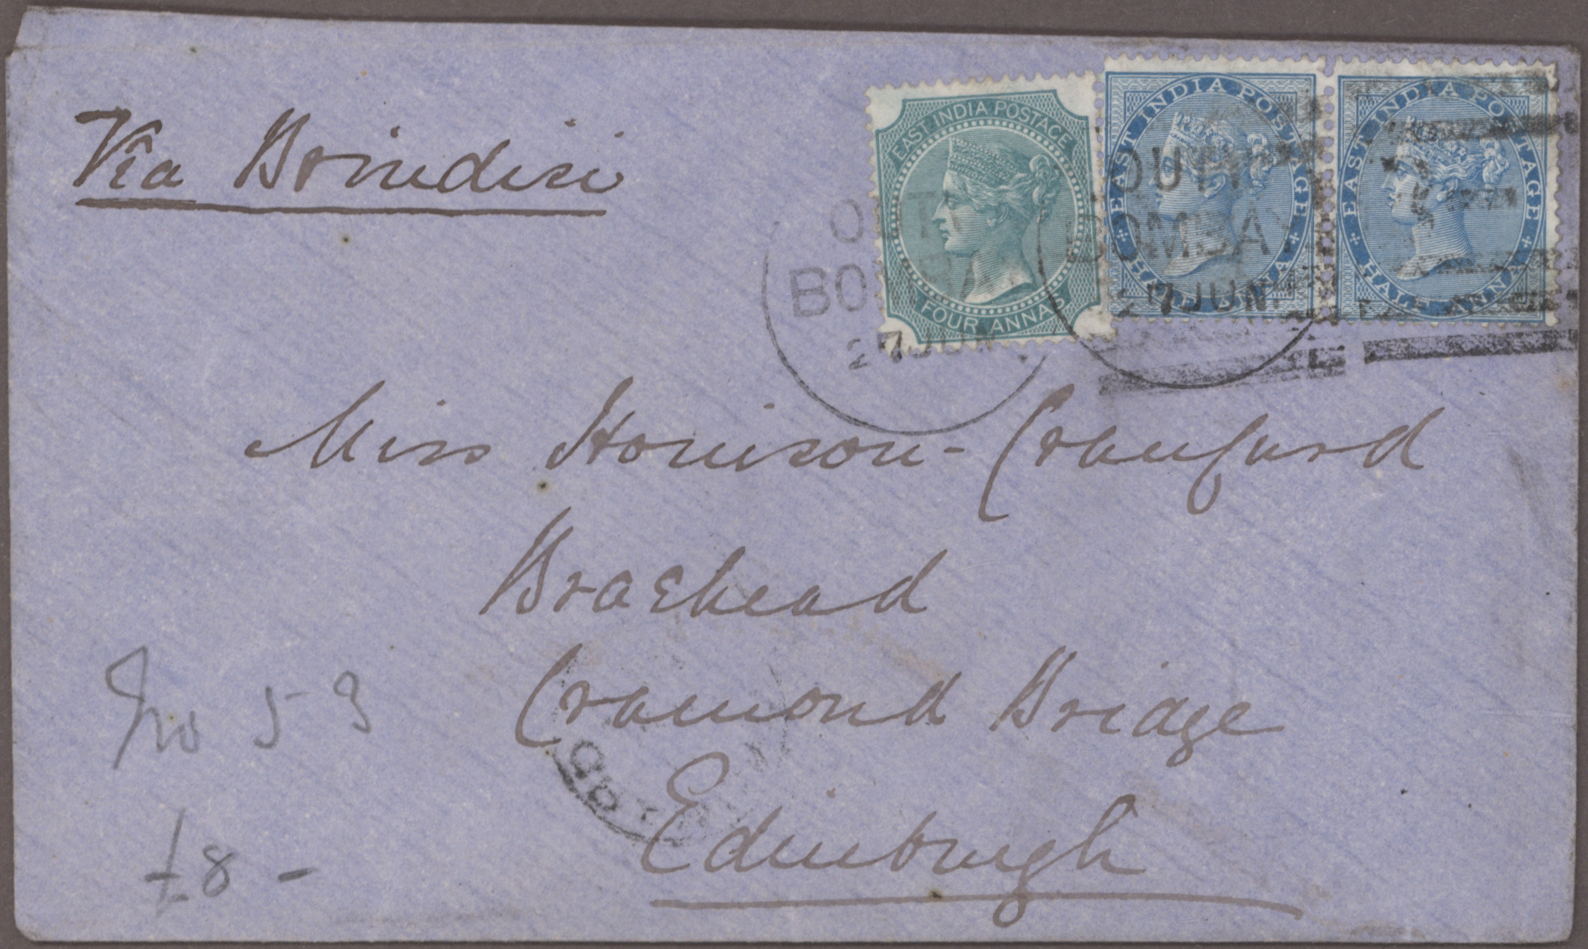 Via Brindisi
EAST INDIA POSTAGE
FOUR ANNAS
EAST INDIA POSTAGE
HALF ANNA
EAST INDIA POSTAGE
HALF ANNA
BOMBAY
27 JUN
BOMBAY
27 JUN
Miss Howison-Craufurd
Braehead
Cramond Bridge
Edinburgh
No 53
£8 -